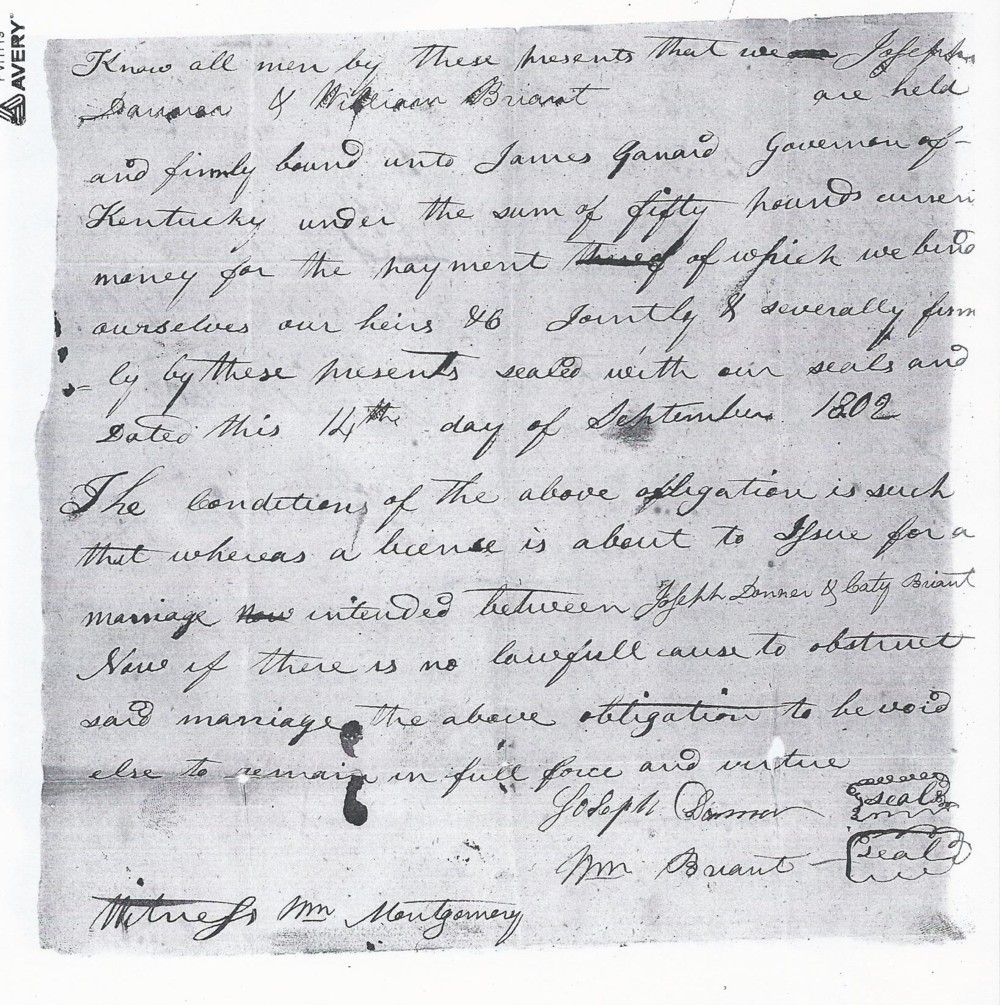 AVERY™
Know all men by these presents that we Joseph
Danman & William Briant are held
and firmly bound unto James Garrard Governor of
Kentucky under the sum of fifty pounds curren
money for the payment of which we bind
ourselves our heirs &c Jointly & severally firm
= ly by these presents sealed with our seals and
Dated this 14th day of September 1802
The Conditions of the above obligation is such
that whereas a licence is about to Issue for a
marriage now intended between Joseph Donner & Caty Briant
Now if there is no lawfull cause to obstruct
said marriage the above obligation to be void
else to remain in full force and virtue
Joseph seal
Wm Briant seal
Witness Wm Montgomery